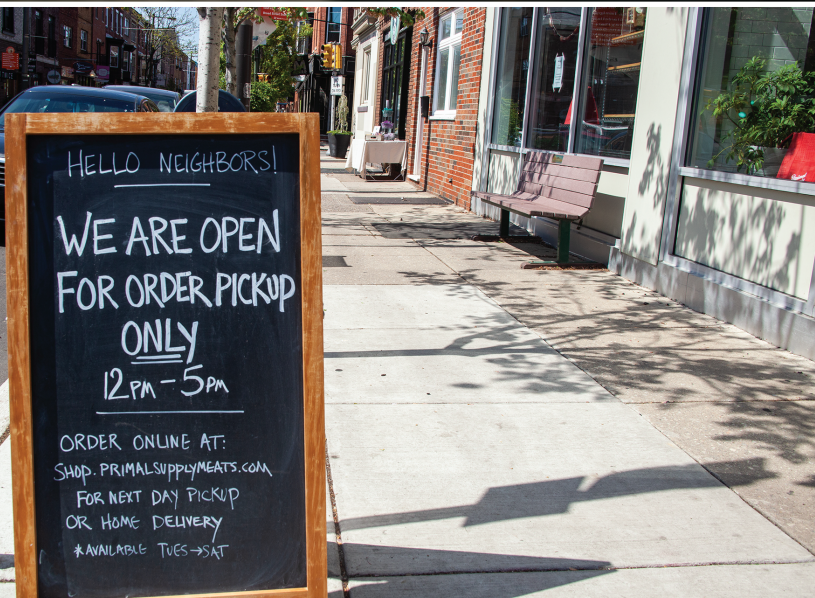 HELLO NEIGHBORS!
WE ARE OPEN
FOR ORDER PICKUP
ONLY
12PM - 5PM
ORDER ONLINE AT:
SHOP.PRIMALSUPPLYMEATS.COM
FOR NEXT DAY PICKUP
OR HOME DELIVERY
*AVAILABLE TUES→SAT